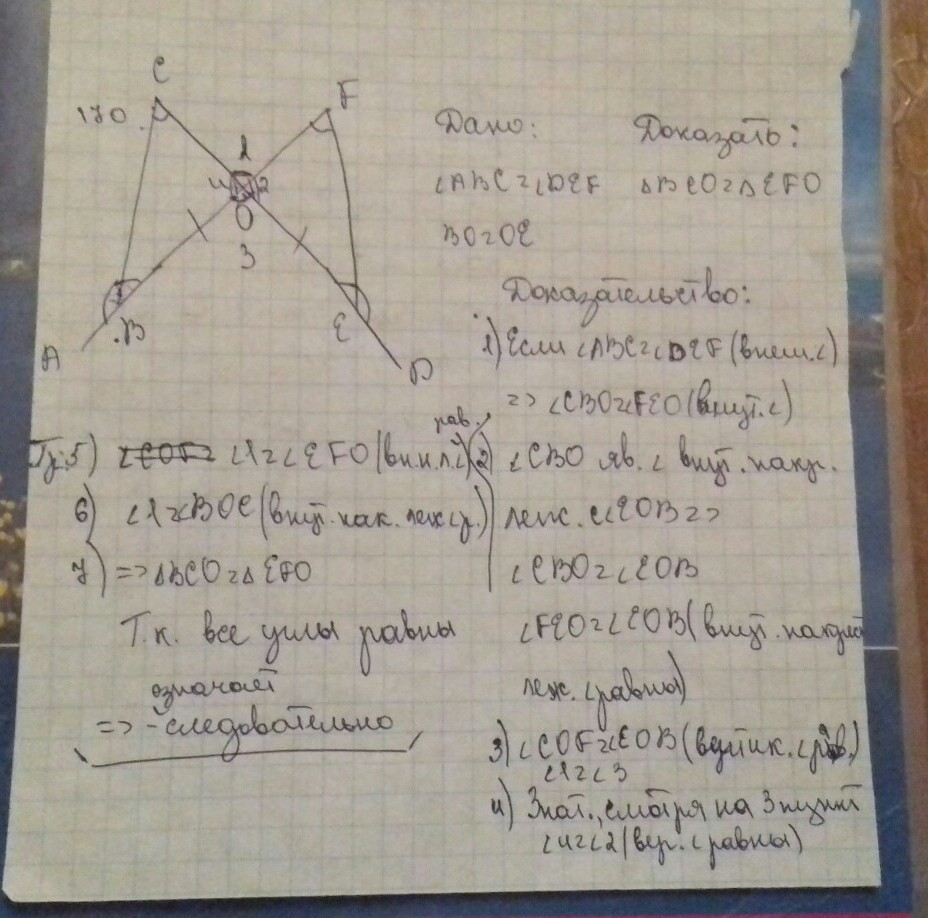 C
F
170.
1
4 2
O
3
B
E
A
D
Дано:
Доказать:
∠ABC=∠DEF
△BCO=△EFO
BO=OE
Доказательство:
1) Если ∠ABC=∠DEF (внеш.∠)
=> ∠CBO=∠FEO (внут.∠)
2) ∠CBO яв. ∠ внут. накр.
леж. с ∠EOB =>
∠CBO=∠EOB
∠FEO=∠EOB (внут. накрест
леж. ∠равны)
3) ∠COF=∠EOB (вертик. ∠рав.)
∠1=∠3
4) Знач., смотря на 3 пункт
∠4=∠2 (вер. ∠равны)
5) ∠COF= ∠1=∠EFO (вн.н.л.∠ рав.)
6) ∠1=∠BOE (внут. нак. леж ∠р.)
7) => △BCO=△EFO
Т.к. все углы равны
означает
=> - следовательно